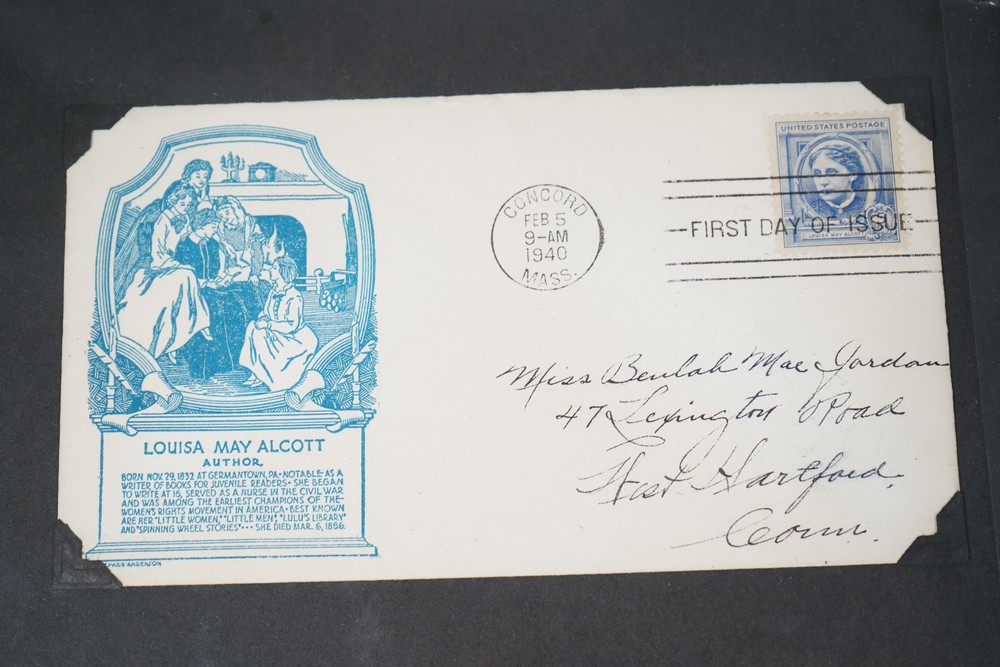 UNITED STATES POSTAGE
LOUISA MAY ALCOTT
CONCORD
FEB 5
9-AM
1940
MASS.
FIRST DAY OF ISSUE
Miss Beulah Mae Jordan
47 Lexington Road
West Hartford,
Conn.
LOUISA MAY ALCOTT
AUTHOR
BORN NOV. 29, 1832 AT GERMANTOWN, PA · NOTABLE AS A
WRITER OF BOOKS FOR JUVENILE READERS · SHE BEGAN
TO WRITE AT 16, SERVED AS A NURSE IN THE CIVIL WAR
AND WAS AMONG THE EARLIEST CHAMPIONS OF THE
WOMEN'S RIGHTS MOVEMENT IN AMERICA · BEST KNOWN
ARE HER "LITTLE WOMEN," "LITTLE MEN," "LULU'S LIBRARY"
AND "SPINNING WHEEL STORIES" ··· SHE DIED MAR. 6, 1886.
ANDERSON